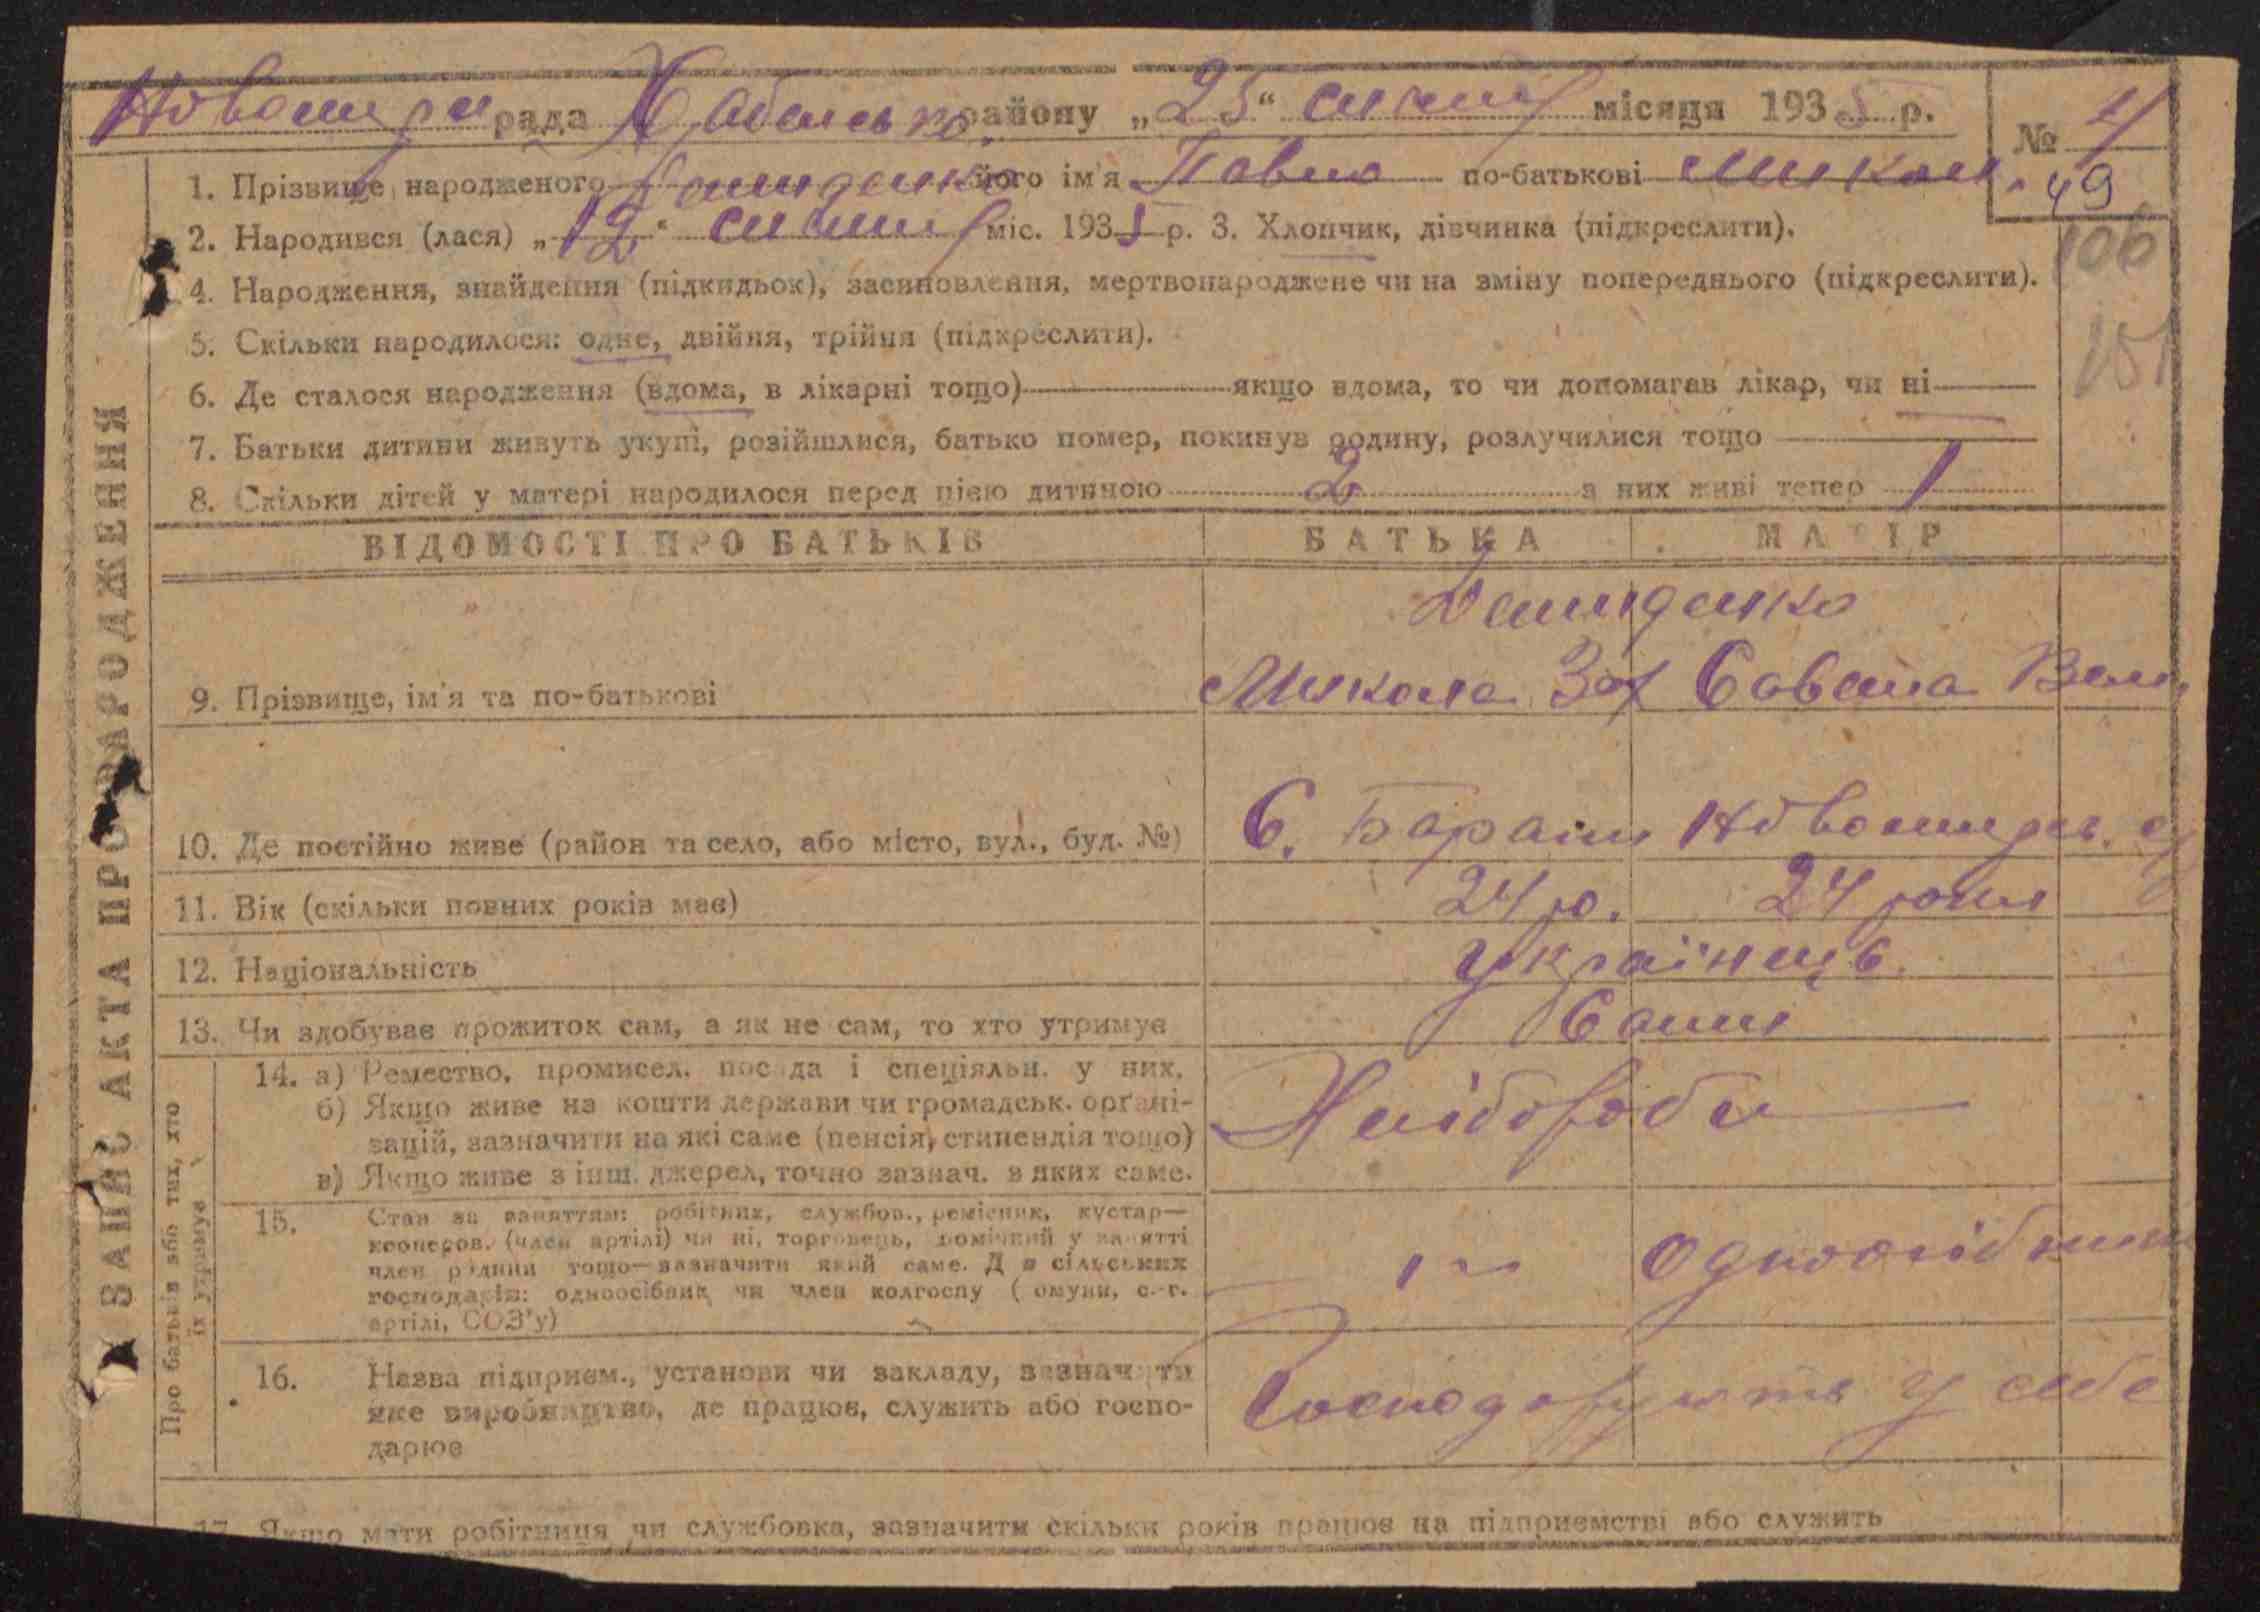 рада району „25“ січня місяця 1935 р.
№ 4
49
1. Прізвище народженого його ім'я Павло по-батькові Микол.
2. Народився (лася) „12“ січня міс. 1935 р. 3. Хлопчик, дівчинка (підкреслити).
106
4. Народження, знайдення (підкидьок), засиновлення, мертвонароджене чи на зміну попереднього (підкреслити).
5. Скільки народилося: одне, двійня, трійня (підкреслити).
151
6. Де сталося народження (вдома, в лікарні тощо) якщо вдома, то чи допомагав лікар, чи ні
7. Батьки дитини живуть укупі, розійшлися, батько помер, покинув родину, розлучилися тощо
8. Скільки дітей у матері народилося перед цією дитиною 2 з них живі тепер 1
ВІДОМОСТІ ПРО БАТЬКІВ БАТЬКА МАТІР
9. Прізвище, ім'я та по-батькові Микола Зах
10. Де постійно живе (район та село, або місто, вул., буд. №) С.
11. Вік (скільки повних років має) 24 ро. 24 роки
12. Національність Українців
13. Чи здобуває прожиток сам, а як не сам, то хто утримує Самі
14. а) Ремество, промисел, посада і спеціяльн. у них.
б) Якщо живе на кошти держави чи громадськ. орґані-
зацій, зазначити на які саме (пенсія, стипендія тощо)
в) Якщо живе з інш. джерел, точно зазнач. з яких саме.
Хліборобі
15. Стан за заняттям: робітник, службов., ремісник, кустар—
кооперов. (член артілі) чи ні, торговець, помічний у занятті
член родини тощо—зазначити який саме. Для сільських
господарів: одноосібник чи член колгоспу (комуни, с.-г.
артілі, СОЗ'у)
Одноосібники
16. Назва підприєм., установи чи закладу, зазначити
яке виробництво, де працює, служить або госпо-
дарює
Господарують у себе
17. Якщо мати робітниця чи службовка, зазначити скільки років працює на підприємстві або служить
ЗАПИС АКТА ПРО НАРОДЖЕННЯ
Про батьків або тих, хто
їх утримує